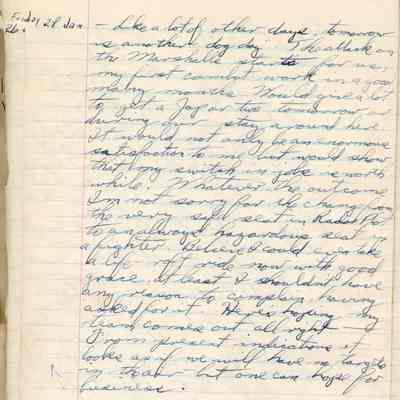 Friday 28 Jan
— Like a lot of other days, tomorrow
is another dog day. The attack on
the Marshalls starts for us,
my first combat work in a good
many months. Would give a lot
to get a Jap or two tomorrow or
during our stay around here.
It would not only be an enormous
satisfaction to me but would show
that my switch in jobs is worth
while. Whatever the outcome
I'm not sorry for the change from
the very safe seat in Radar Plot
to an always hazardous seat in
a fighter. Believe I could even take
a life raft ride now with good
grace, at least I shouldn't have
any reason to complain, having
asked for it. Here's hoping my
team comes out all right —
From present indications it
looks as if we will have no targets
in the air but one can hope for
business.